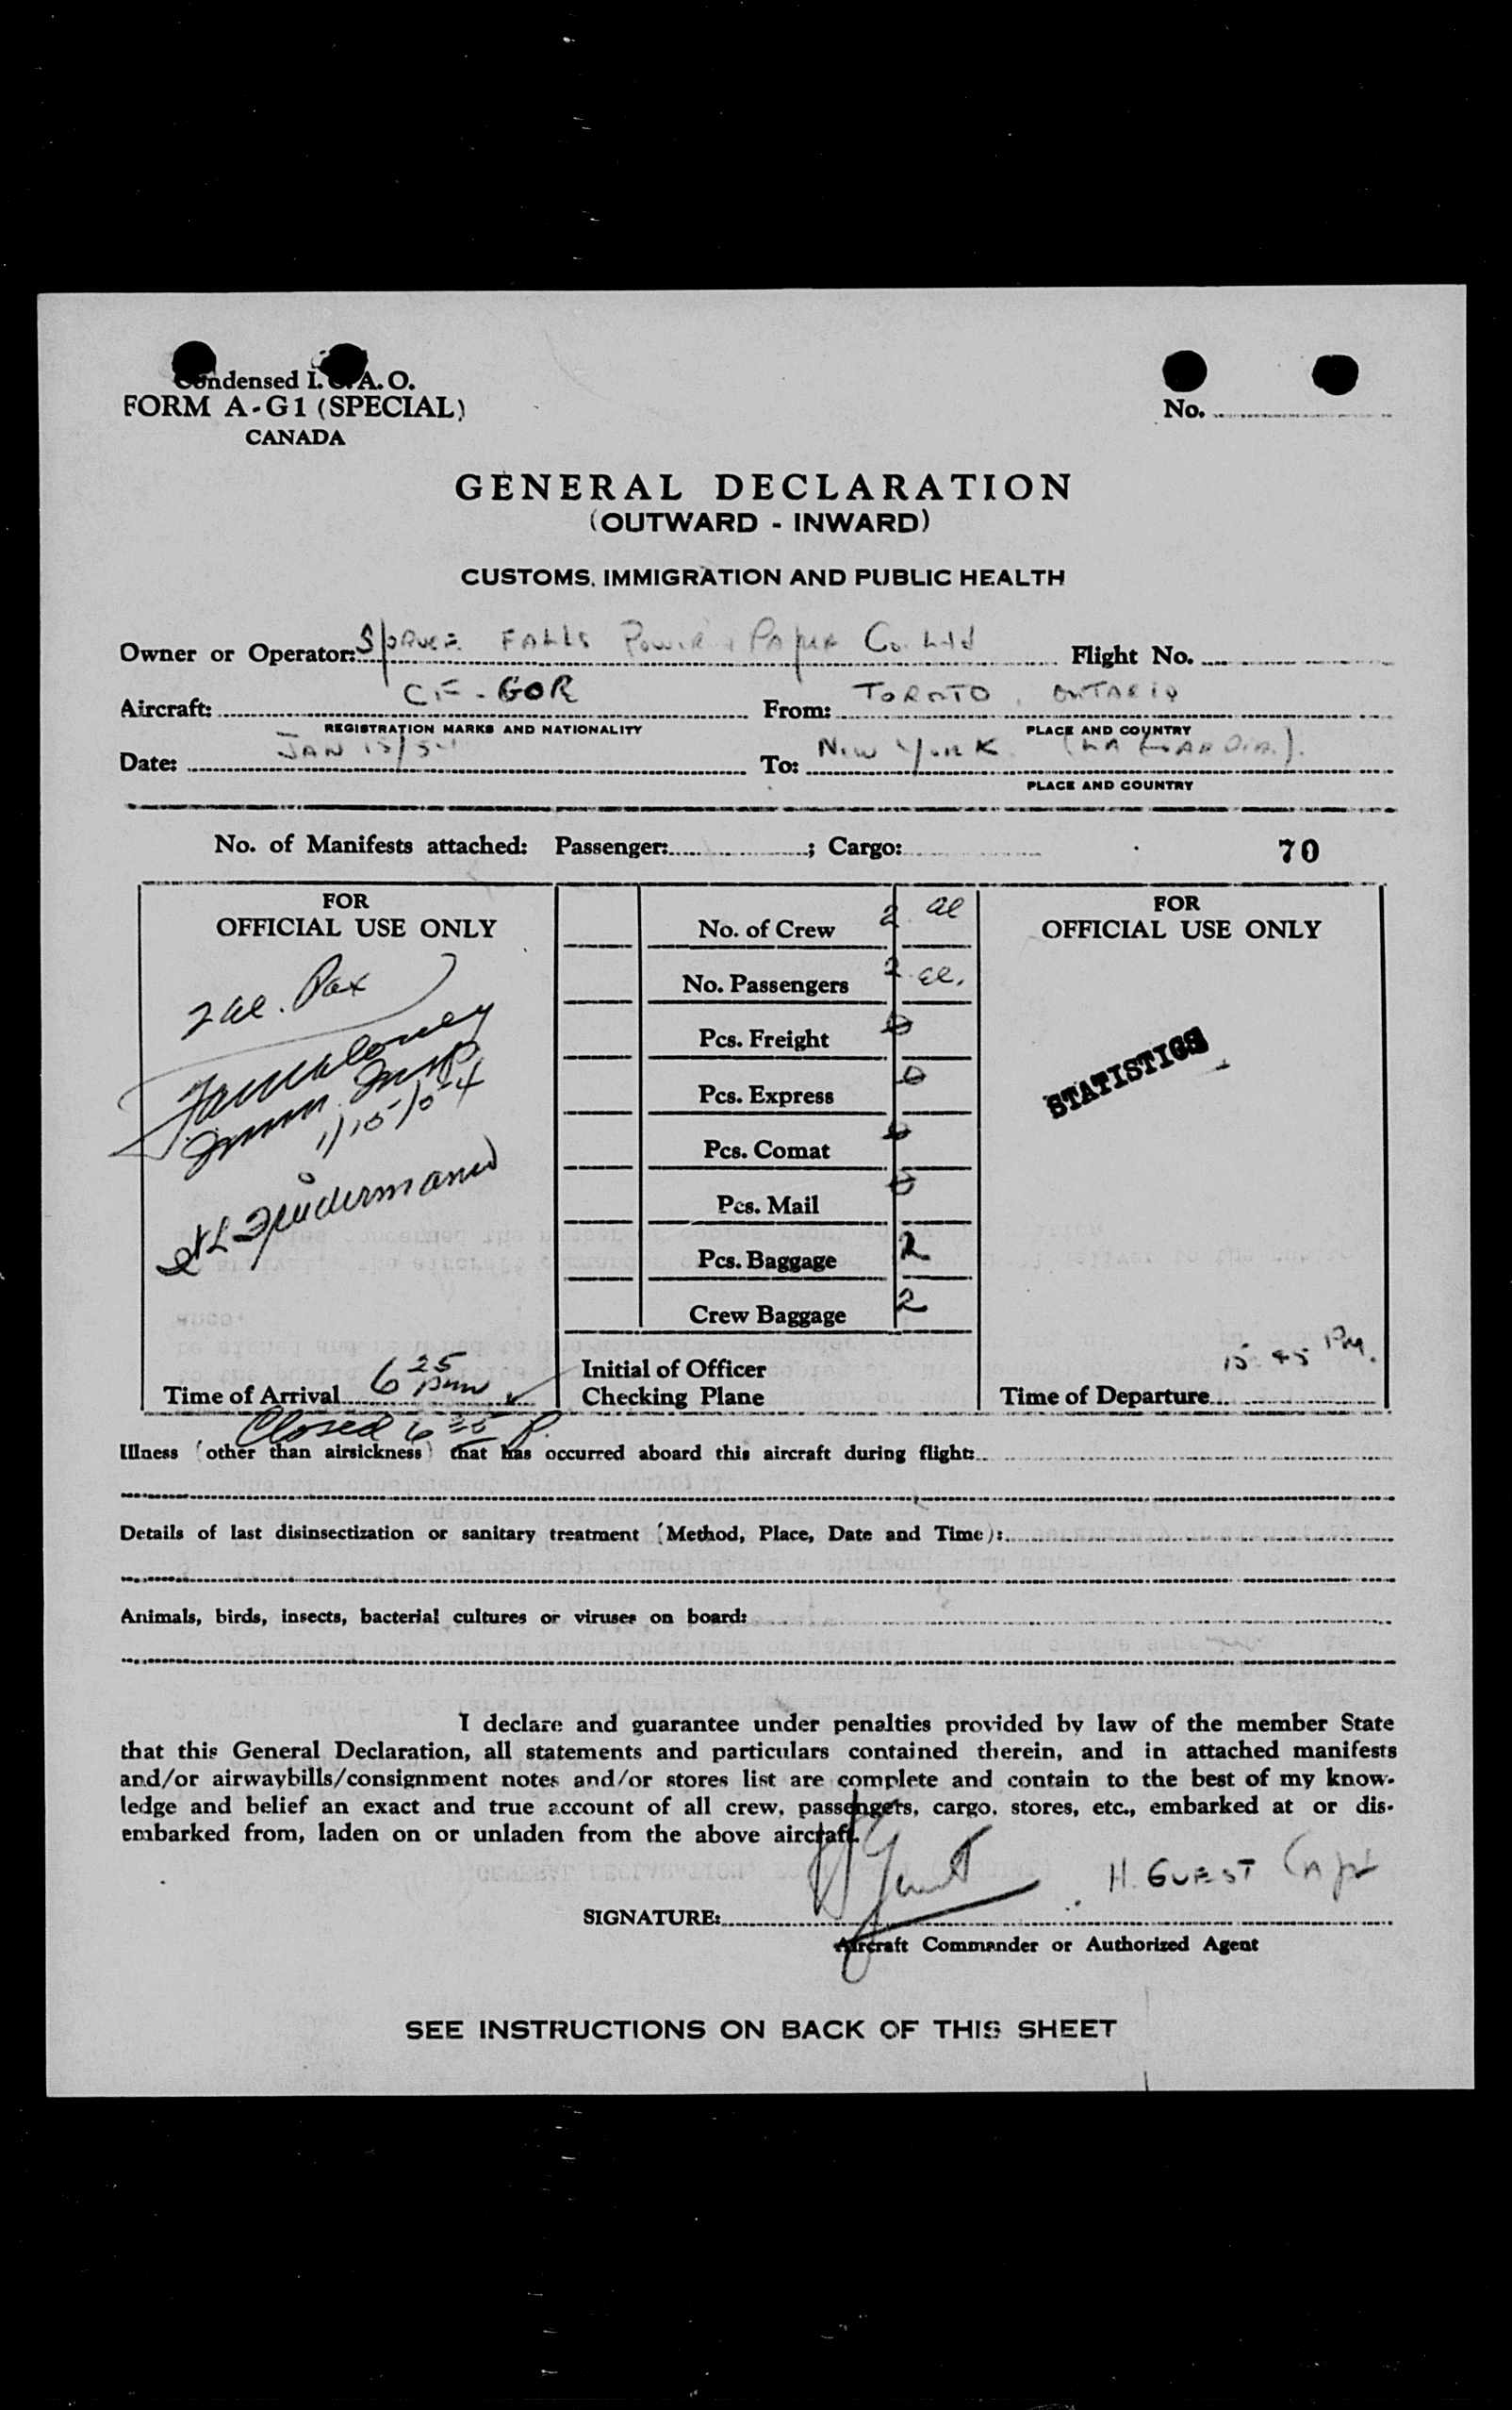 Condensed I.C.A.O.
FORM A-G1 (SPECIAL)
CANADA
No.
GENERAL DECLARATION
(OUTWARD - INWARD)
CUSTOMS, IMMIGRATION AND PUBLIC HEALTH
Owner or Operator: SPRUCE FALLS POWER & PAPER Co. Ltd Flight No.
Aircraft: CF-GOR From: TORNTO, ONTARIO
REGISTRATION MARKS AND NATIONALITY PLACE AND COUNTRY
Date: JAN 15/54 To: NEW YORK (LA GARDIA).
PLACE AND COUNTRY
No. of Manifests attached: Passenger: ; Cargo: 70
FOR
OFFICIAL USE ONLY
2 al. Pax
Imm. Insp
1/15/54
Time of Arrival 6 25 pm
Closed 6 35 P.
No. of Crew 2 al
No. Passengers 2 al.
Pcs. Freight 0
Pcs. Express 0
Pcs. Comat 0
Pcs. Mail 0
Pcs. Baggage 2
Crew Baggage 2
Initial of Officer
Checking Plane
FOR
OFFICIAL USE ONLY
STATISTICS
Time of Departure 15:45 PM.
Illness (other than airsickness) that has occurred aboard this aircraft during flight:
Details of last disinsectization or sanitary treatment (Method, Place, Date and Time):
Animals, birds, insects, bacterial cultures or viruses on board:
I declare and guarantee under penalties provided by law of the member State
that this General Declaration, all statements and particulars contained therein, and in attached manifests
and/or airwaybills/consignment notes and/or stores list are complete and contain to the best of my know-
ledge and belief an exact and true account of all crew, passengers, cargo, stores, etc., embarked at or dis-
embarked from, laden on or unladen from the above aircraft.
H Guest H. GUEST Capt
SIGNATURE:
Aircraft Commander or Authorized Agent
SEE INSTRUCTIONS ON BACK OF THIS SHEET